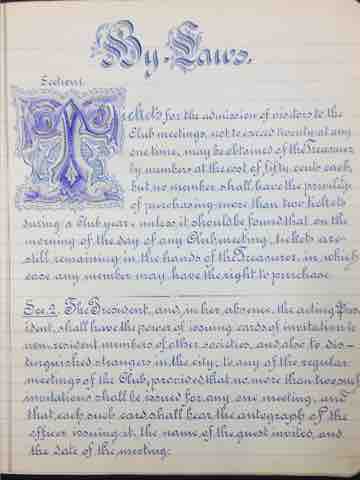 By-Laws.
Section 1.
Tickets for the admission of visitors to the
Club meetings, not to exceed twenty at any
one time, may be obtained of the Treasurer
by members at the cost of fifty cents each,
but no member shall have the privilege
of purchasing more than two tickets
during a Club year, unless it should be found that, on the
morning of the day of any Club meeting, tickets are
still remaining in the hands of the Treasurer, in which
case any member may have the right to purchase.
Sec. 2. The President, and, in her absence, the acting Pres-
ident, shall have the power of issuing cards of invitation to
non-resident members of other societies, and also to dis-
tinguished strangers in the city, to any of the regular
meetings of the Club, provided that no more than two such
invitations shall be issued for any one meeting, and
that each such card shall bear the autograph of the
officer issuing it, the name of the guest invited, and
the date of the meeting.